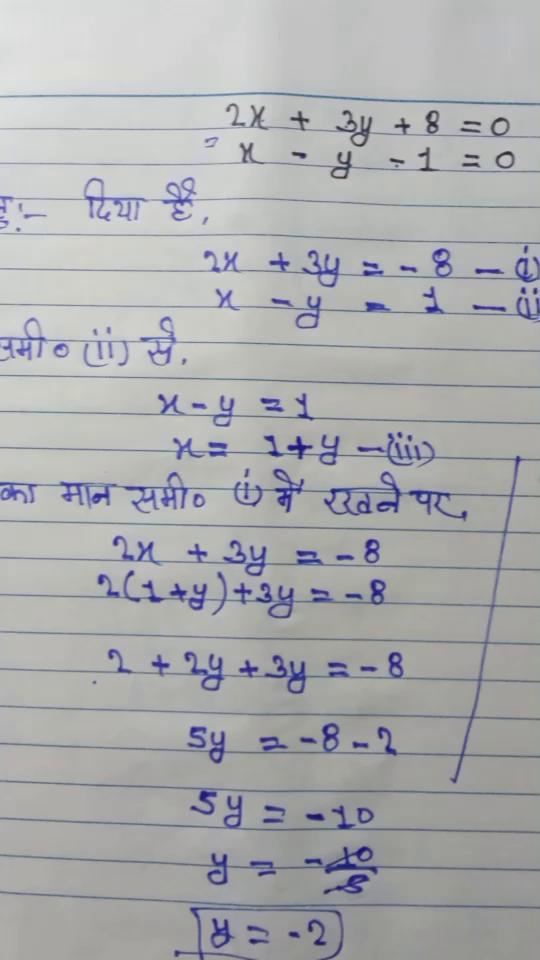 2x + 3y + 8 = 0
= x - y - 1 = 0
:- दिया है,
2x + 3y = - 8 - (i)
x - y = 1 - (ii
समी० (ii) से,
x - y = 1
x = 1 + y - (iii)
का मान समी० (i) में रखने पर,
2x + 3y = - 8
2(1 + y) + 3y = - 8
2 + 2y + 3y = - 8
5y = - 8 - 2
5y = - 10
y = - 10/5
y = - 2